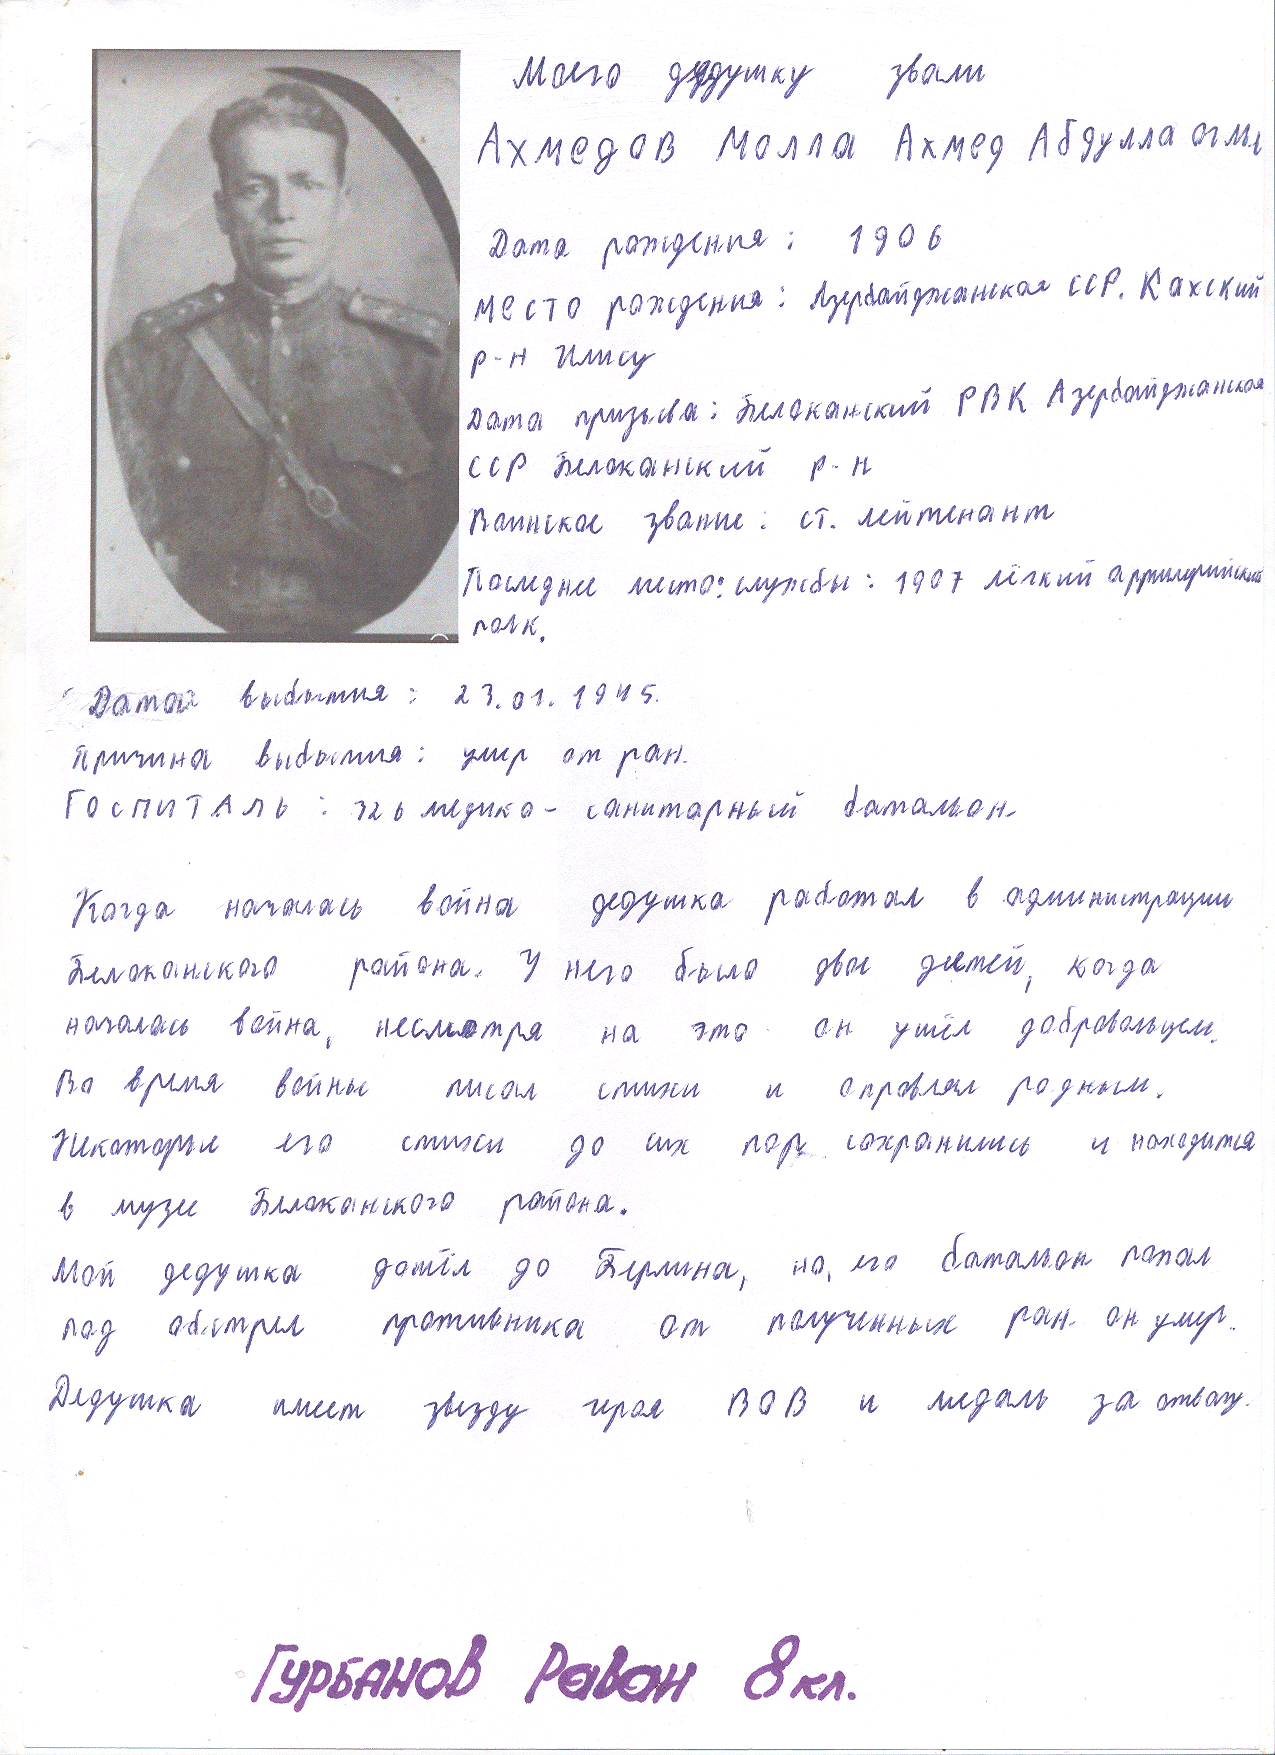 Моего дедушку звали
Ахмедов Молла Ахмед Абдулла оглы
Дата рождения: 1906
место рождения: Азербайджанская ССР. Кахский
р-н Илису
Дата призыва: Белоканский РВК Азербайджанская
ССР Белоканский р-н
Воинское звание: ст. лейтенант
Последнее место службы: 1907 лёгкий артиллерийский
полк.
Датой выбытия: 23.01.1945.
Причина выбытия: умер от ран.
Госпиталь: медико-санитарный батальон.
Когда началась война дедушка работал в администрации
Белоканского района. У него было двое детей, когда
началась война, несмотря на это он ушёл добровольцем.
Во время войны писал стихи и оправлял родным.
Некоторые его стихи до сих пор сохранились и находится
в музее Белоканского района.
Мой дедушка дошёл до Берлина, но, его батальон попал
под обстрел противника от полученных ран он умер.
Дедушка имеет звезду героя ВОВ и медаль за отвагу.
Гурбанов Раван 8 кл.